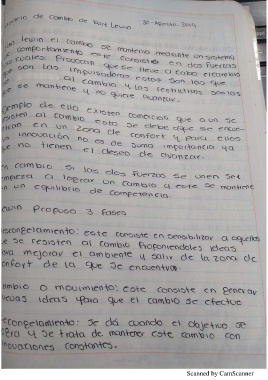 de Cambio de Kurt Lewin 30-Agosto-2019
lewin el cambio se mantenia mediante un sistema
comportamiento este consiste en dos fuerzas
cuales Provocan que se lleve a cabo el cambio
son las impulsadoras estas son las que
al cambio y las restrictivas solo
se mantiene y no quiere avanzar.
emplo de ello existen comercios que aun se
resisten al cambio esto se debe a que se
en un zona de confort y para ellos
innovación no es de suma importancia ya
no tienen el deseo de avanzar.
cambio si las dos fuerzas se unen se
empieza a lograr un cambio y este se mantiene
n un equilibrio de competencia.
ewin Propuso 3 fases
escongelamiento: este consiste en sensibilizar a aquellos
e se resisten al cambio Proponiendoles ideas
ra mejorar el ambiente y salir de la zona de
onfort de la que se encuentran
ambio o movimiento: este consiste en generar
nuevas ideas para que el cambio se efectue
econgelamiento: se da cuando el objetivo se
logra y se trata de mantener este cambio con
nnovaciones constantes.
Scanned by CamScanner